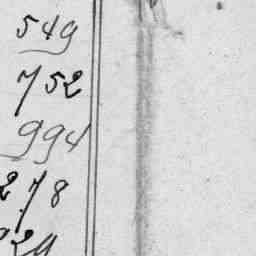 549
752
994
278
29